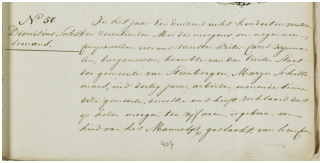 No 50.
Dionisius Schel
lemans.
In het jaar Een duizend acht honderd en
den Mei des morgens om negen uren,
Compareerden voor ons meester Pieter Carel
burgemeester, beambte van den Burger Staat
der gemeente van Steenbergen, Marijn Schelle
mans, oud dertig jaren, arbeider, wonende binnen
deze gemeente, dewelke ons heeft verklaard dat
op heden morgen ten vijf uren, is geboren een
kind van het Mannelijk geslacht, van hem
407